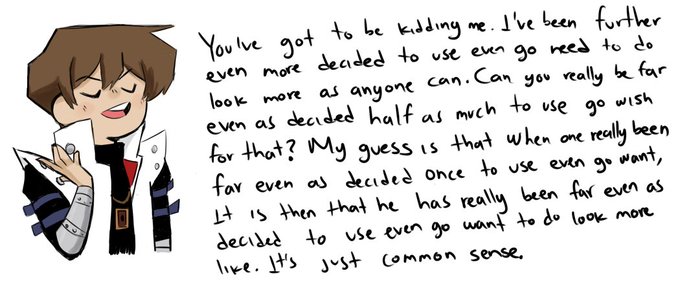 You've got to be kidding me. I've been further
even more decided to use even go need to do
look more as anyone can. Can you really be far
even as decided half as much to use go wish
for that? My guess is that when one really been
far even as decided once to use even go want,
It is then that he has really been far even as
decided to use even go want to do look more
like. It's just common sense.